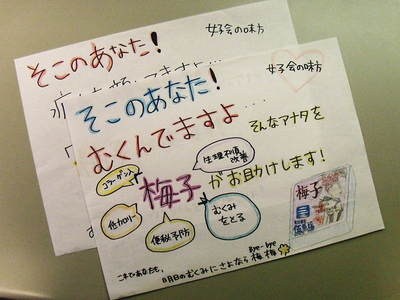 女子会の味方
そこのあなた!
女子会の味方
そこのあなた!
むくんでますよ....
そんなアナタを
生理不順
改善
コラーゲン入
梅子がお助けします!
低カロリー
便秘予防
むくみ
をとる
梅子
こまであなたも、
明日のむくみにさよなら梅梅
Bye-bye